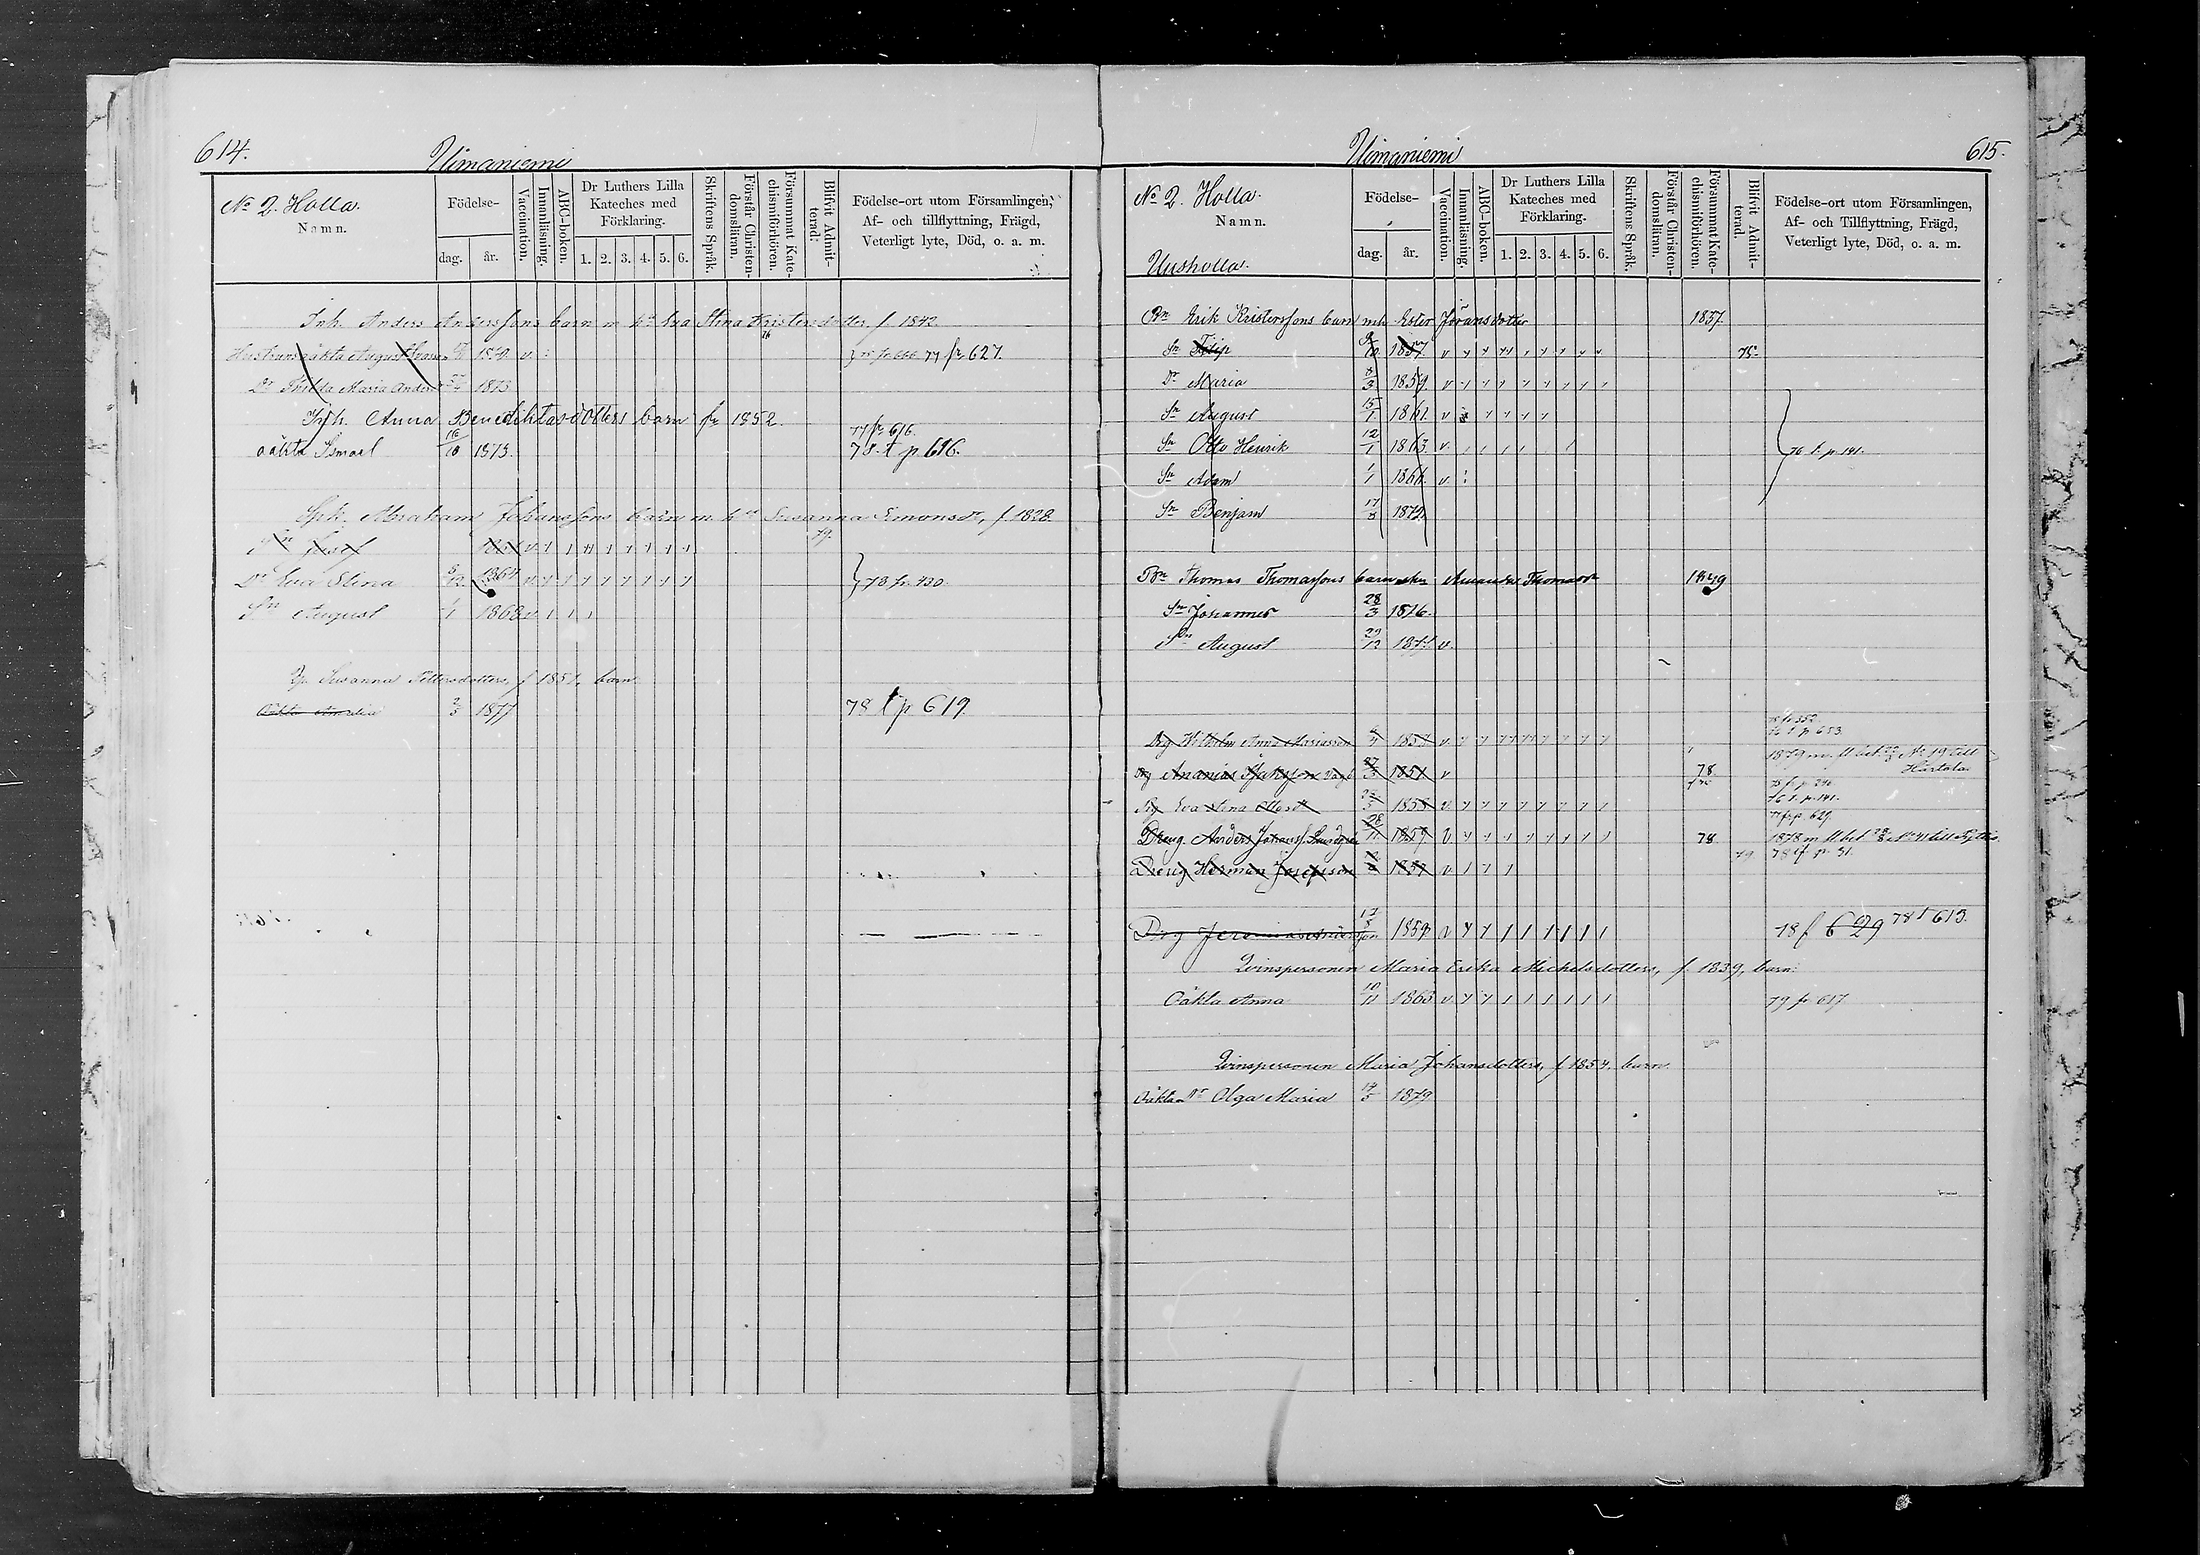 614.
Uimaniemi
No 2. Holla.
Namn.
Födelse-
dag.
år.
Vaccination.
Innanläsning.
ABC-boken.
Dr Luthers Lilla
Kateches med
Förklaring.
1. 2. 3. 4. 5. 6.
Skriftens Språk.
Förstår Christen-
domsläran.
Försummat Kate-
chismiförhören.
Blifvit Admit-
terad:
Födelse-ort utom Församlingen,
Af- och tillflyttning, Frägd,
Veterligt lyte, Död, o. a. m.
Inh. Anders Anderssons barn m. h. Eva Stina Kristersdotter f. 1842
Hustruns oäkta August v 77 fr 627.
Dr Thilda Maria Anders 1873
Inh. Anna Benediktasdotters barn fr 1852.
77 fr 616.
oäkta Ismael 16/10 1873. 78. t p. 616.
Abraham Johanssons barn m. h. Susanna Simonsdr, f. 1828.
79.
Sn Josef v
Dr Eva Stina 8/12 1864 v 78 fr. 430.
Sn August 1/1 1868 v
Susanna Pettersdotters, f 1851, barn
Oäkta Amalia 2/3 1877 78 t p 619.
615.
Uimaniemi
No 2. Holla.
Namn.
Uusholla.
Födelse-
dag.
år.
Vaccination.
Innanläsning.
ABC-boken.
Dr Luthers Lilla
Kateches med
Förklaring.
1. 2. 3. 4. 5. 6.
Skriftens Språk.
Förstår Christen-
domsläran.
Försummat Kate-
chismiförhören.
Blifvit Admit-
terad.
Födelse-ort utom Församlingen,
Af- och Tillflyttning, Frägd,
Veterligt lyte, Död, o. a. m.
Bn Erik Kristerssons barn Ester Jöransdotter 1837.
Sn Filip 1857. v 75.
Dr Maria 8/3 1859. v
Sn August 15/1 1861. v
Sn Otto Henrik 12/1 1863. v 76 t. p. 141.
Sn Adam 1/1 1866. v
Sn Benjam 17/8 1872.
Bn Thomas Thomassons barn Amanda Thomasdr 1849
Sn Johannes 28/3 1876.
Sn August 29/12 1877 v.
fr 552.
76 t p 653
Drg Wilhelm Anna Mariasson 1857 v
1879 m. fl. bet. No 19 till
Hartola
Drg Ananias 27/3 1851 v 78
76 t. p. 141.
Eva Stina 1853 v
77 fr p. 629.
Dreng Anders Johanss. 28/11 1857 v 78 1878 m. fl. bet
79 78 f. p. 51.
Dreng Herman Josefsson 1857 v
Drg Jeremias Andersson 17/5 1859 v 78 f 629 78 t 613.
Qvinspersonen Maria Erika Michelsdotters, f. 1839, barn:
Oäkta Anna 10/11 1863 v 79 fr 617
Qvinspersonen Maria Johansdotters, f 1854. barn
Oäkta Dr Olga Maria 14/5 1879